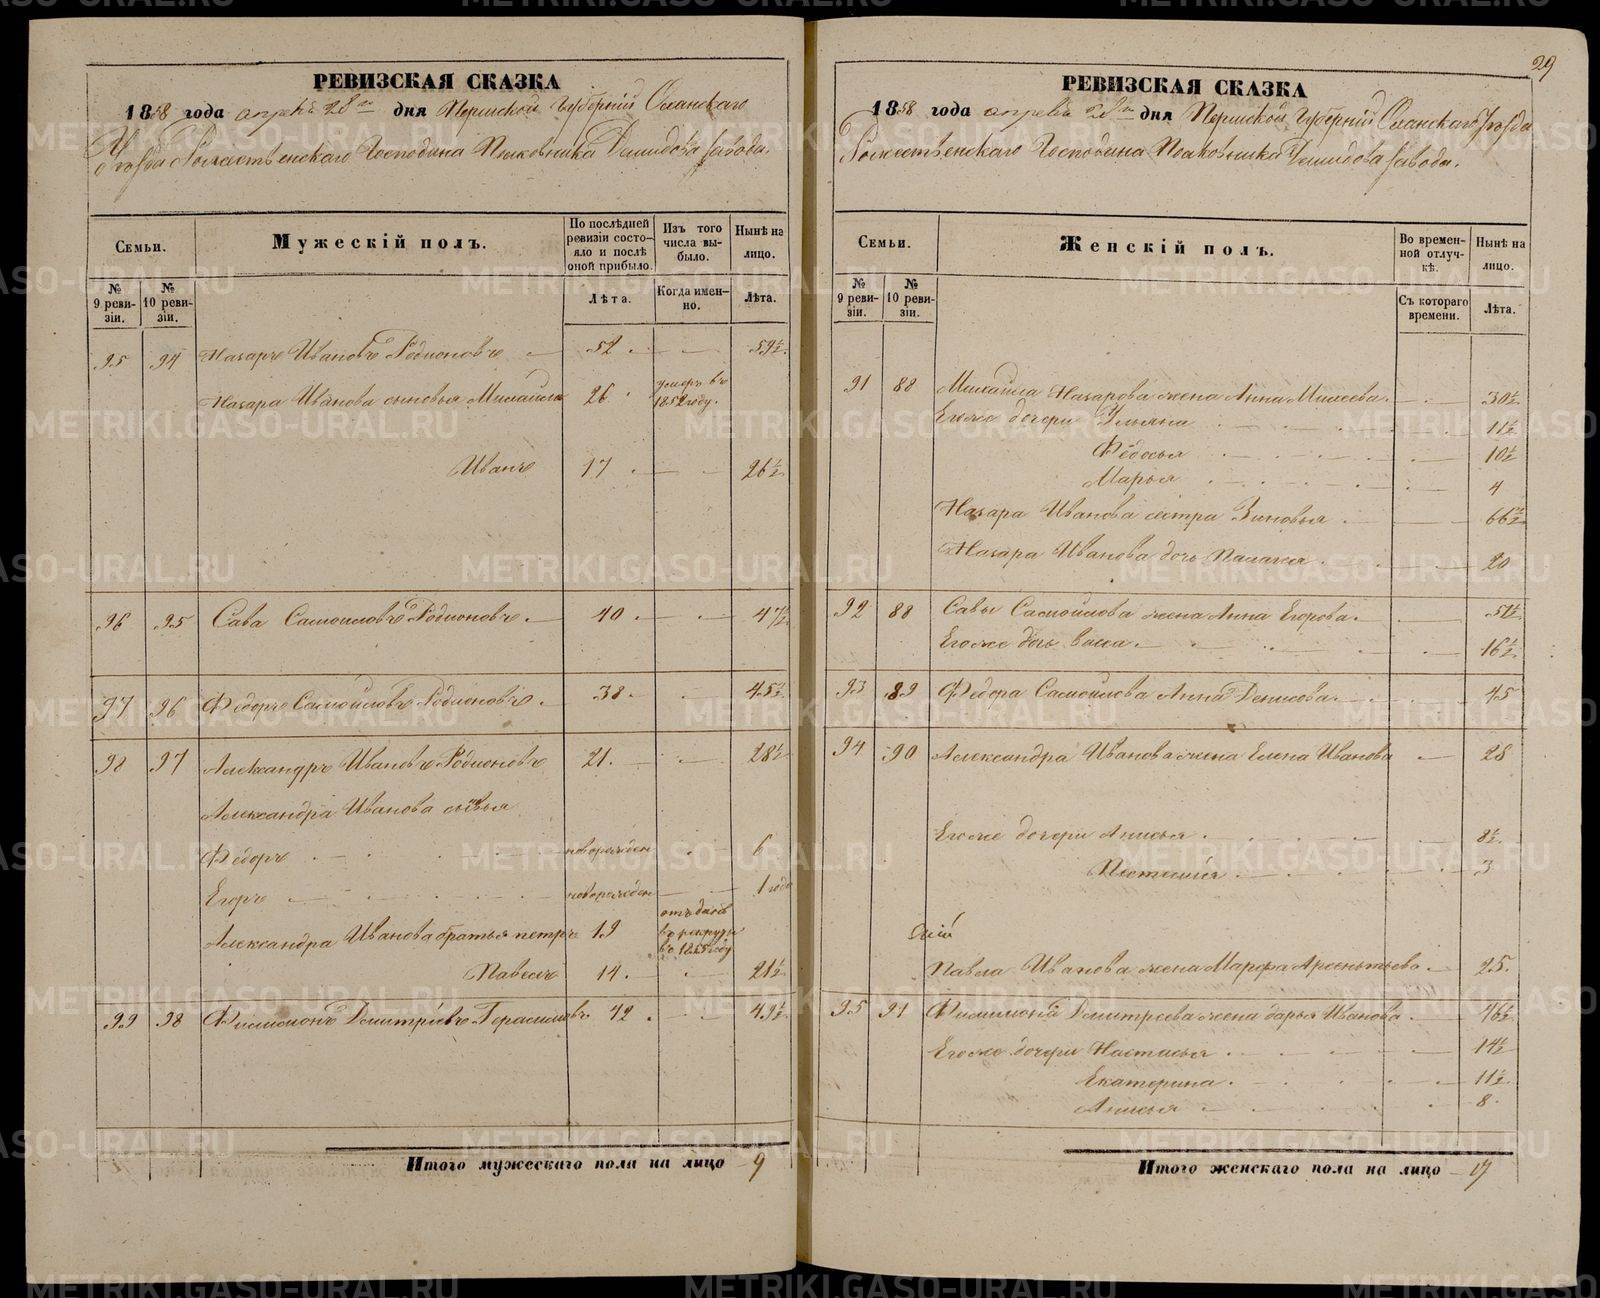 РЕВИЗСКАЯ СКАЗКА
1858 года апреля 28го дня Пермской губернiи Осинскаго
Уѣзда Рождественскаго Господина Полковника Демидова завода.
Семьи.
Мужескiй полъ.
По послѣдней ревизiи состояло и послѣ оной прибыло.
Изъ того числа выбыло.
Нынѣ на лицо.
№ 9 ревизiи.
№ 10 ревизiи.
Лѣта.
Когда именно.
Лѣта.
95 94 Назаръ Ивановъ Родионовъ 52 59½
Назара Иванова сыновья Михайла 26 умеръ въ 1852 году.
Иванъ 17 26½
96 95 Сава Самойловъ Родионовъ 40 47½
97 96 Федоръ Самойловъ Родионовъ 38 45½
98 97 Александръ Ивановъ Родионовъ 21 28½
Александра Иванова сыновья
Федоръ новорожден 6
Егоръ новорожден 1 годъ
Александра Иванова братья петръ 19 отъданъ в рекруты въ 1855 году
Павелъ 14 21½
99 98 Филимонъ Дмитрiевъ Герасимовъ 42 49½
Итого мужескаго пола на лицо 9
29
РЕВИЗСКАЯ СКАЗКА
1858 года апреля 28го дня Пермской губернiи Осинскаго уѣзда
Рождественскаго Господина Полковника Демидова завода.
Семьи.
Женскiй полъ.
Во временной отлучкѣ.
Нынѣ на лицо.
№ 9 ревизiи.
№ 10 ревизiи.
Съ котораго времени.
Лѣта.
91 88 Михайла Назарова жена Анна Михеева 30½
Егоже дочери Ульяна 11½
Федосья 10½
Марья 4
Назара Иванова сестра Зиновья 66½
Назара Иванова дочь Палагея 20
92 88 Савы Самойлова жена Анна Егорова 51½
Егоже дочь Васса 16½
93 89 Федора Самойлова Анна Денисова 45
94 90 Александра Иванова жена Елена Иванова 28
Егоже дочери Анисья 8½
3
Павла Иванова жена Марфа Арсентьева 25
95 91 Филимона Дмитреева жена дарья Иванова 46½
Егоже дочери Настасья 14½
Екатерина 11½
Анисья 8
Итого женскаго пола на лицо 17
METRIKI.GASO-URAL.RU